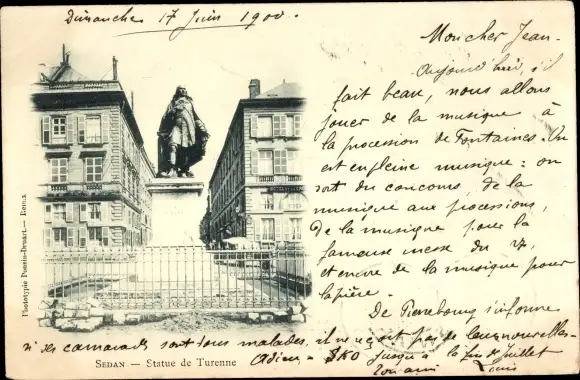 Dimanche 17 Juin 1900.
Mon cher Jean -
Aujourd'hui, s'il
fait beau, nous allons
jouer de la musique à
la procession de Fontaines. On
est en pleine musique : on
sort du concours, de la
musique aux processions,
De la musique pour la
fameuse messe du 7,
et encore de la musique pour
De Pierrebourg s'informe
si ses camarades sont tous malades, il ne reçoit pas de leurs nouvelles -
Adieu - jusqu'à la fin de Juillet
Ton ami Louis
SEDAN — Statue de Turenne
Phototypie Poncin-Druart. — Reims